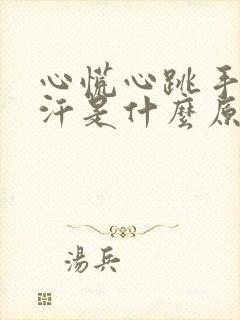 心慌心跳手
汗是什麼原
湯兵